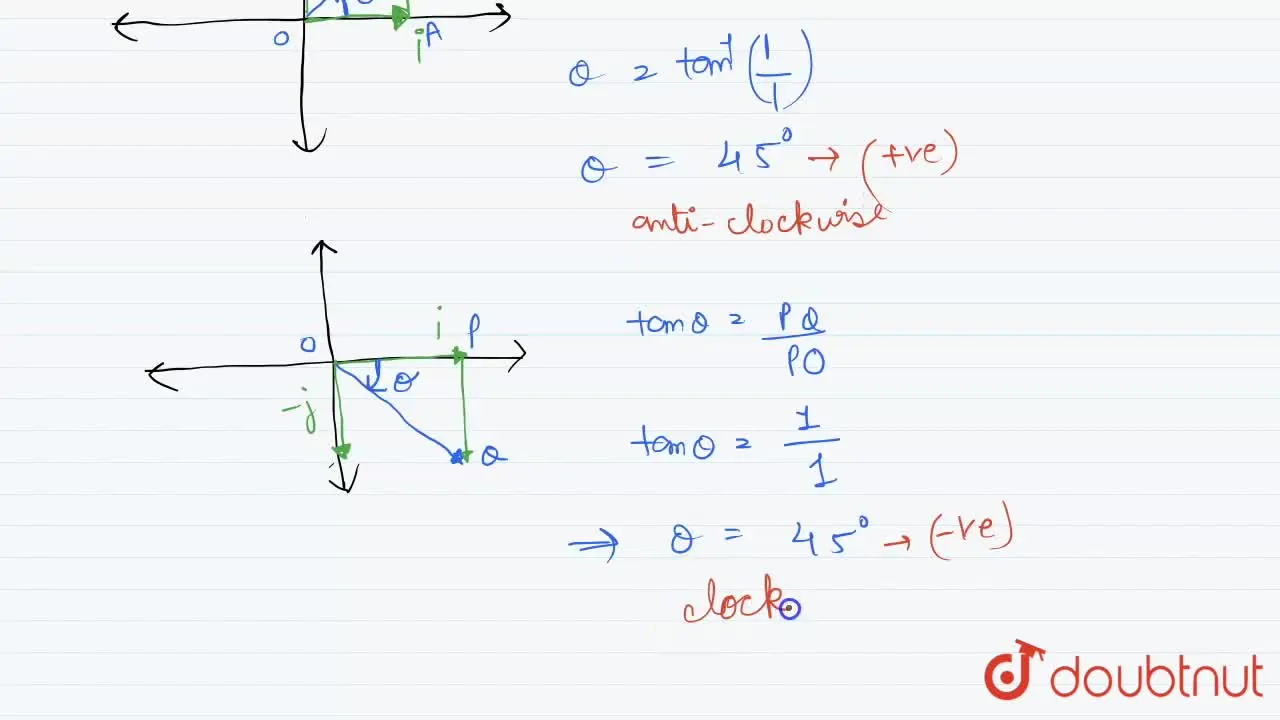 θ
O
i A
θ = tan⁻¹ (1/1)
θ = 45° → (+ve)
anti-clockwise
i P
O
θ
-j
Q
tanθ = PQ/PO
tanθ = 1/1
⇒ θ = 45° → (-ve)
clock
doubtnut